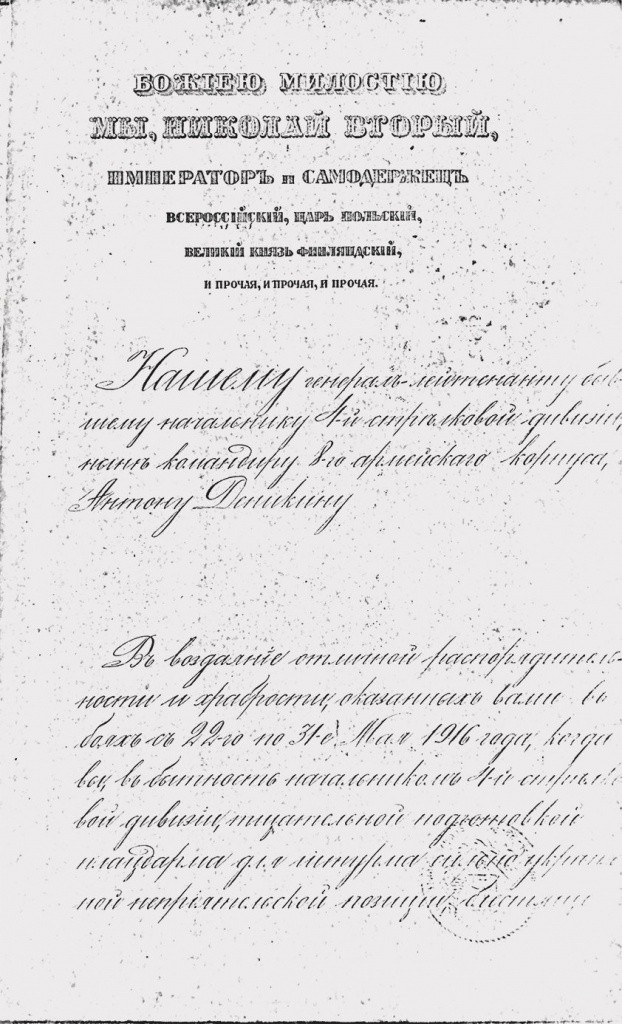 БОЖІЕЮ МИЛОСТІЮ
МЫ, НИКОЛАЙ ВТОРЫЙ,
ИМПЕРАТОРЪ и САМОДЕРЖЕЦЪ
ВСЕРОССІЙСКІЙ, ЦАРЬ ПОЛЬСКІЙ,
ВЕЛИКІЙ КНЯЗЬ ФИНЛЯНДСКІЙ,
И ПРОЧАЯ, И ПРОЧАЯ, И ПРОЧАЯ.
Нашему генералъ-лейтенанту быв-
шему начальнику 4-й стрѣлковой дивизіи,
нынѣ командиру 8-го армейскаго корпуса,
Антону Деникину
Въ воздаяніе отличной распорядитель-
ности и храбрости, оказанныхъ вами въ
бояхъ съ 22-го по 31-е Мая 1916 года, когда
вы, въ бытность начальникомъ 4-й стрѣлко
вой дивизіи, тщательной подготовкой
плацдарма для штурма сильно укрѣплен
ной непріятельской позиціи,